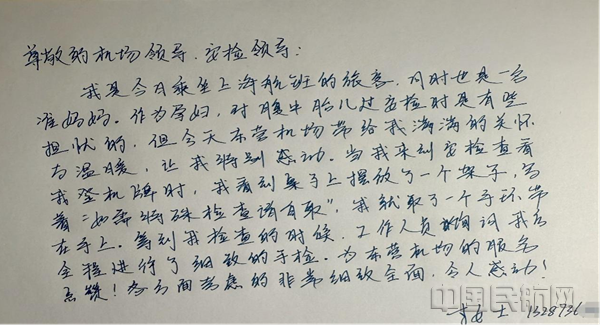 尊敬的机场领导、安检领导:
我是今日乘坐上海航班的旅客,同时也是一名
准妈妈。作为孕妇,对腹中胎儿过安检时是有些
担忧的,但今天东营机场带给我满满的关怀
与温暖,让我特别感动。当我来到安检查看
我登机牌时,我看到桌子上摆放了一个架子,写
着"如需特殊检查请自取",我就取了一个手环,带
在手上。等到我检查的时候,工作人员询问我后
全程进行了细致的手检。为东营机场的服务
点赞!各方面考虑的非常细致全面,令人感动!
女士 1328936
中国民航网